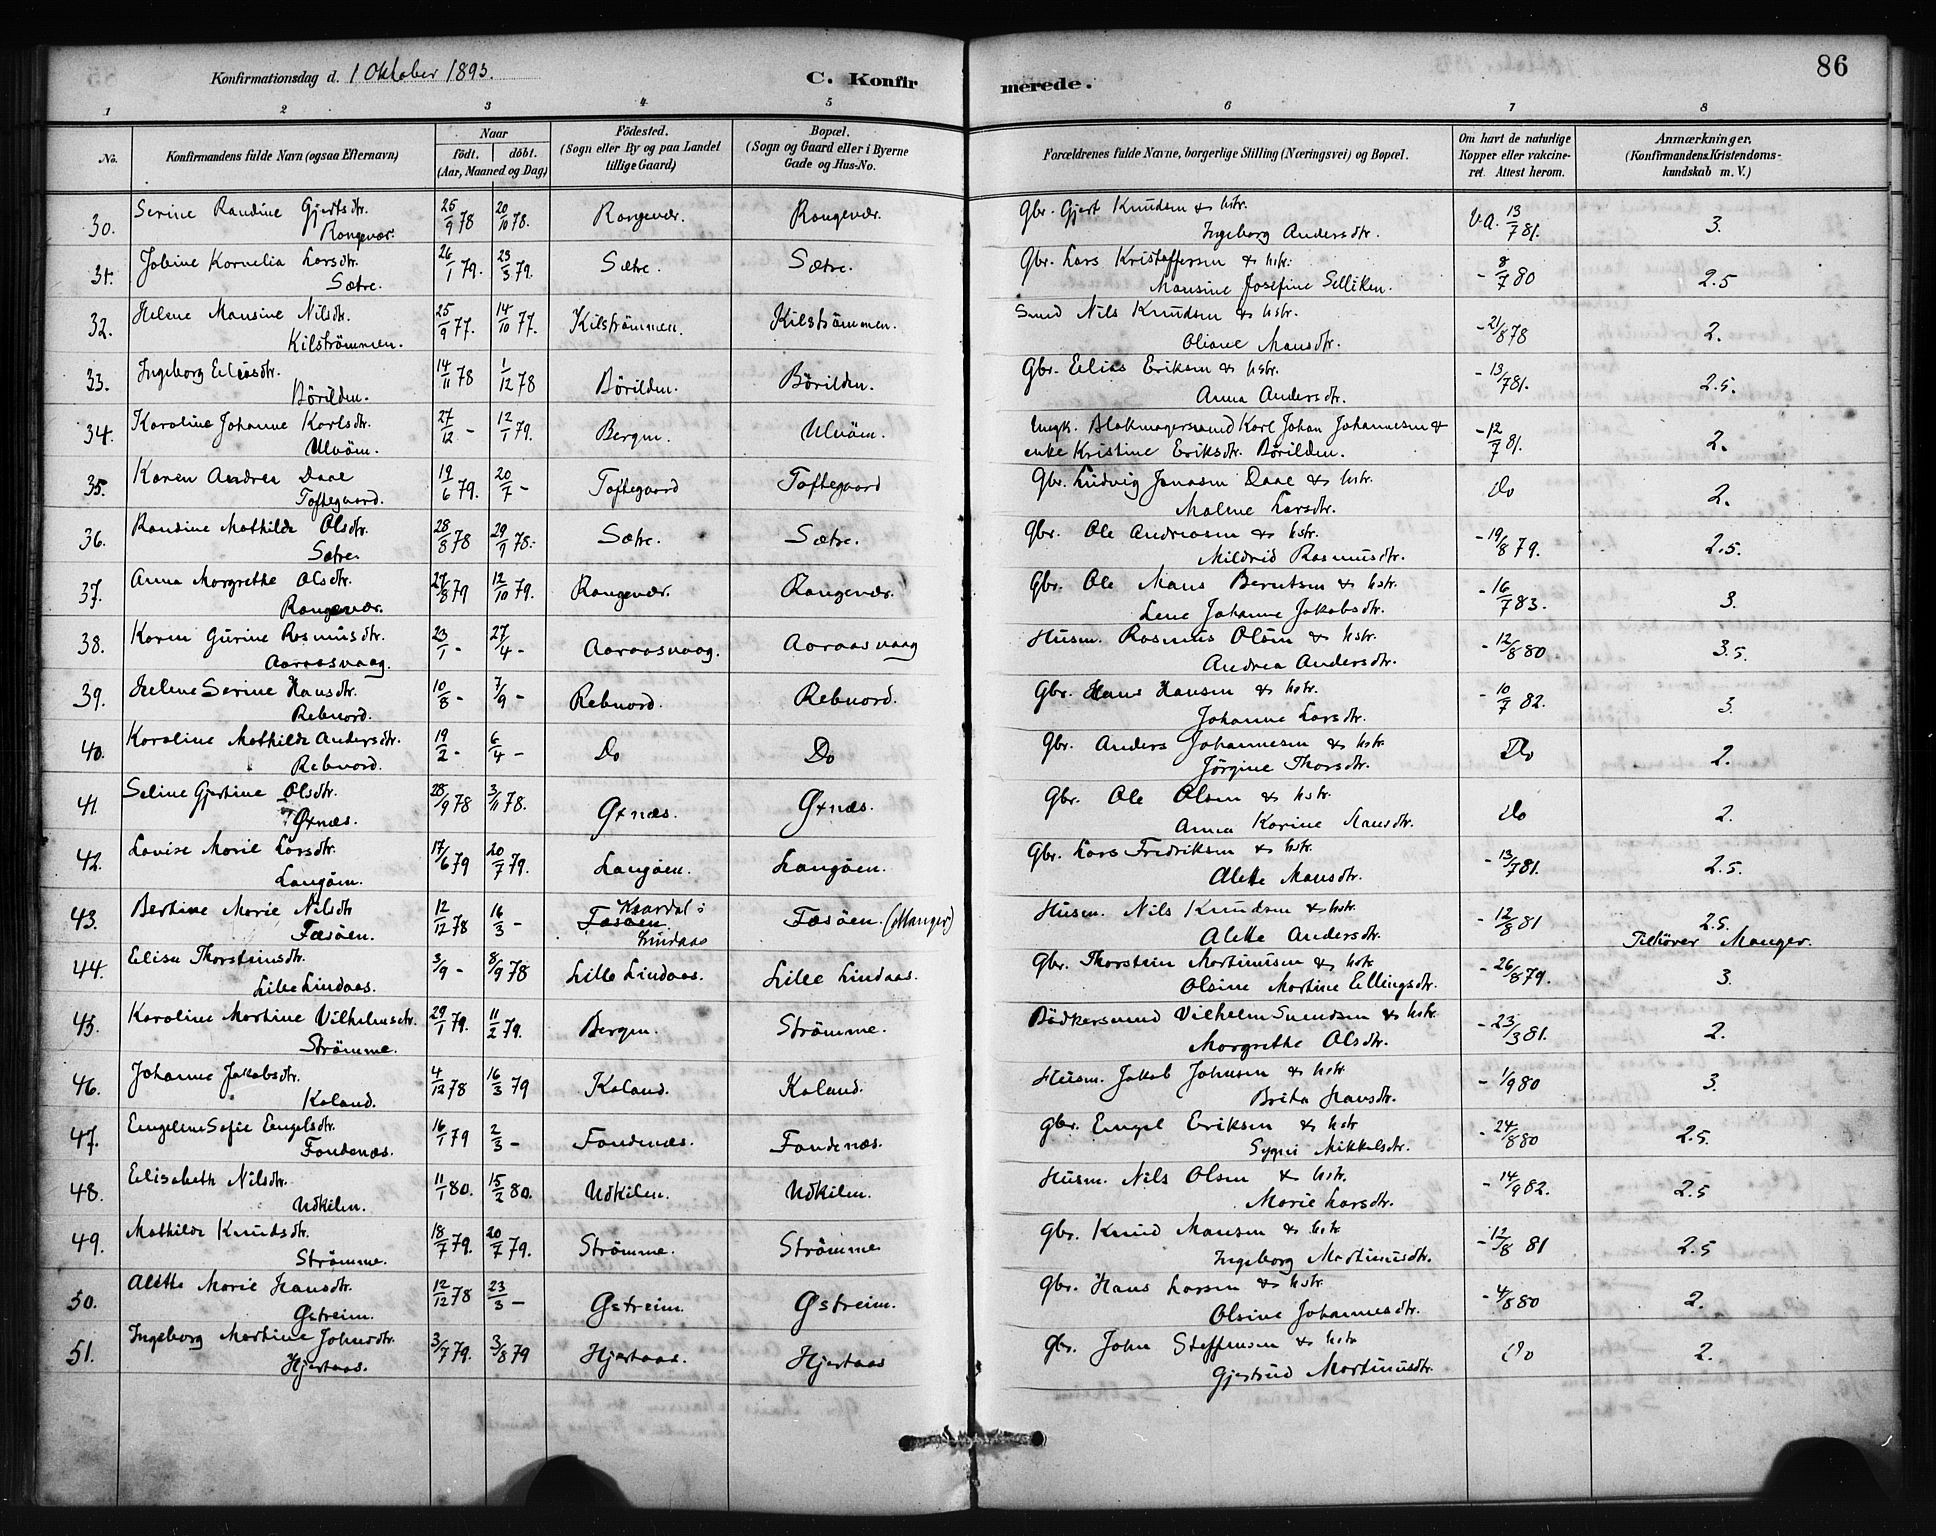 Konfirmationsdag d. 1 Oktober 1893. C. Konfirmerede. 86
1 2 3 4 5 6 7 8
No. | Konfirmandens fulde Navn (ogsaa Efternavn) | Naar födt. döbt. (Aar, Maaned og Dag) | Födested. (Sogn eller By og paa Landet tillige Gaard) | Bopæl. (Sogn og Gaard eller i Byerne Gade og Hus-No. | Forældrenes fulde Navne, borgerlige Stilling (Næringsvei) og Bopæl. | Om havt de naturlige Kopper eller vakcineret. Attest herom. | Anmærkninger. (Konfirmandens Kristendomskundskab m. V.)
30. Serine Randine Gjertsdtr. Rongevær. | 25/9 78 | 20/10 78. | Rongevær. | Rongevær. | Gbr. Gjert Knudsen & hstr. Ingeborg Andersdtr. | V.a. 13/7 81. | 3.
31. Jobine Kornelia Larsdtr. Sætre. | 26/1 79. | 23/3 79. | Sætre. | Sætre. | Gbr. Lars Kristoffersen & hstr. Mansine Josefine Selliken. | - 8/7 80 | 2.5
32. Helene Mansine Nilsdtr. Kilströmmen. | 25/9 77. | 14/10 77. | Kilströmmen. | Kilströmmen. | Smed Nils Knudsen & hstr. Oliane Mansdtr. | - 21/8 78 | 2.
33. Ingeborg Eliasdtr. Börilden. | 14/11 78 | 1/12 78 | Börilden. | Börilden. | Gbr. Elias Eriksen & hstr. Anna Andersdtr. | - 13/7 81. | 2.5.
34. Karoline Johanne Karlsdtr. Ulvöen. | 27/12 - | 12/1 79. | Bergen. | Ulvöen. | Ungk. Blokmagersvend Karl Johan Johannesen & enke Kristine Eriksdtr. Börilden. | - 12/7 81. | 2.
35. Karen Andrea Daae Toftegaard. | 19/6 79. | 20/7 - | Toftegaard | Toftegaard | Gbr. Ludvig Jonasen Daae & hstr. Malene Larsdtr. | Do | 2.
36. Randine Mathilde Olsdtr. Sætre. | 28/8 78 | 29/9 78. | Sætre. | Sætre. | Gbr. Ole Andreasen & hstr. Mildrid Rasmusdtr. | - 19/8 79. | 2.5.
37. Anna Margrethe Olsdtr. Rongevær. | 27/8 79 | 12/10 79. | Rongevær. | Rongevær. | Gbr. Ole Mans Berntsen & hstr. Lene Johanne Jakobsdtr. | - 16/7 83. | 3.
38. Karen Gurine Rasmusdtr. Aaraasvaag. | 23/1 - | 27/4 - | Aaraasvaag. | Aaraasvaag | Husm. Rasmus Olsen & hstr. Andrea Andersdtr. | - 12/8 80. | 3.5.
39. Helene Serine Hansdtr. Rebnord. | 10/8 - | 7/9 - | Rebnord. | Rebnord. | Gbr. Hans Hansen & hstr. Johanne Larsdtr. | - 10/7 82. | 3.
40. Karoline Mathilde Andersdtr. Rebnord. | 19/2 - | 6/4 - | Do | Do | Gbr. Anders Johannesen & hstr. Jörgine Thorsdtr. | Do | 2.
41. Seline Gjertine Olsdtr. Øxnæs. | 28/9 78 | 3/11 78. | Øxnæs. | Øxnæs. | Gbr. Ole Olsen & hstr. Anna Karine Mansdtr. | Do | 2.
42. Lovise Marie Larsdtr. Langöen. | 17/6 79 | 20/7 79. | Langöen. | Langöen. | Gbr. Lars Fredriksen & hstr. Alette Mansdtr. | - 13/7 81. | 2.5.
43. Bertine Marie Nilsdtr Fæsöen. | 12/12 78 | 16/3 - | Kvardal i Fæsöen. Lindaas | Fæsöen. (Manger) | Husm. Nils Knudsen & hstr. Alette Andersdtr. | - 12/8 81 | 2.5. Tilhörer Manger.
44. Elisa Thorsteinsdtr. Lille Lindaas. | 3/9 - | 8/9 78 | Lille Lindaas. | Lille Lindaas. | Gbr. Thorstein Martinusen & hstr Olsine Martine Ellingsdtr. | - 26/8 79. | 3.
45. Karoline Martine Vilhelmsdtr. Strömme. | 29/1 79. | 11/2 79. | Bergen. | Strömme. | Bödkersvend Vilhelm Svendsen & hstr. Margrethe Olsdtr. | - 23/3 81. | 2.
46. Johanne Jakobsdtr. Kaland. | 4/12 78 | 16/3 79 | Kaland. | Kaland. | Husm. Jakob Johnsen & hstr Brita Hansdtr. | - 1/9 80 | 3.
47. Engeline Sofie Engelsdtr. Fondenæs. | 16/1 79 | 2/3 - | Fondenæs. | Fondenæs. | Gbr. Engel Eriksen & hstr Sygni Mikkelsdtr. | - 24/8 80 | 2.5.
48. Elisabeth Nilsdtr. Udkilen. | 11/1 80. | 15/2 80. | Udkilen. | Udkilen. | Husm. Nils Olsen & hstr. Marie Larsdtr. | - 14/9 82. | 2.5
49. Mathilde Knudsdtr. Strömme. | 18/7 79. | 20/7 79. | Strömme. | Strömme | Gbr. Knud Mansen & hstr Ingeborg Martinusdtr. | - 12/8 81 | 2.5
50. Alette Marie Hansdtr. Østreim. | 12/12 78 | 23/3 - | Østreim. | Østreim. | Gbr. Hans Larsen & hstr. Olsine Johannesdtr. | - 4/8 80 | 2.
51. Ingeborg Martine Johnsdtr. Hjertaas. | 3/7 79. | 3/8 79 | Hjertaas. | Hjertaas | Gbr. John Steffensen & hstr Gjertrud Martinusdtr. | Do | 2.